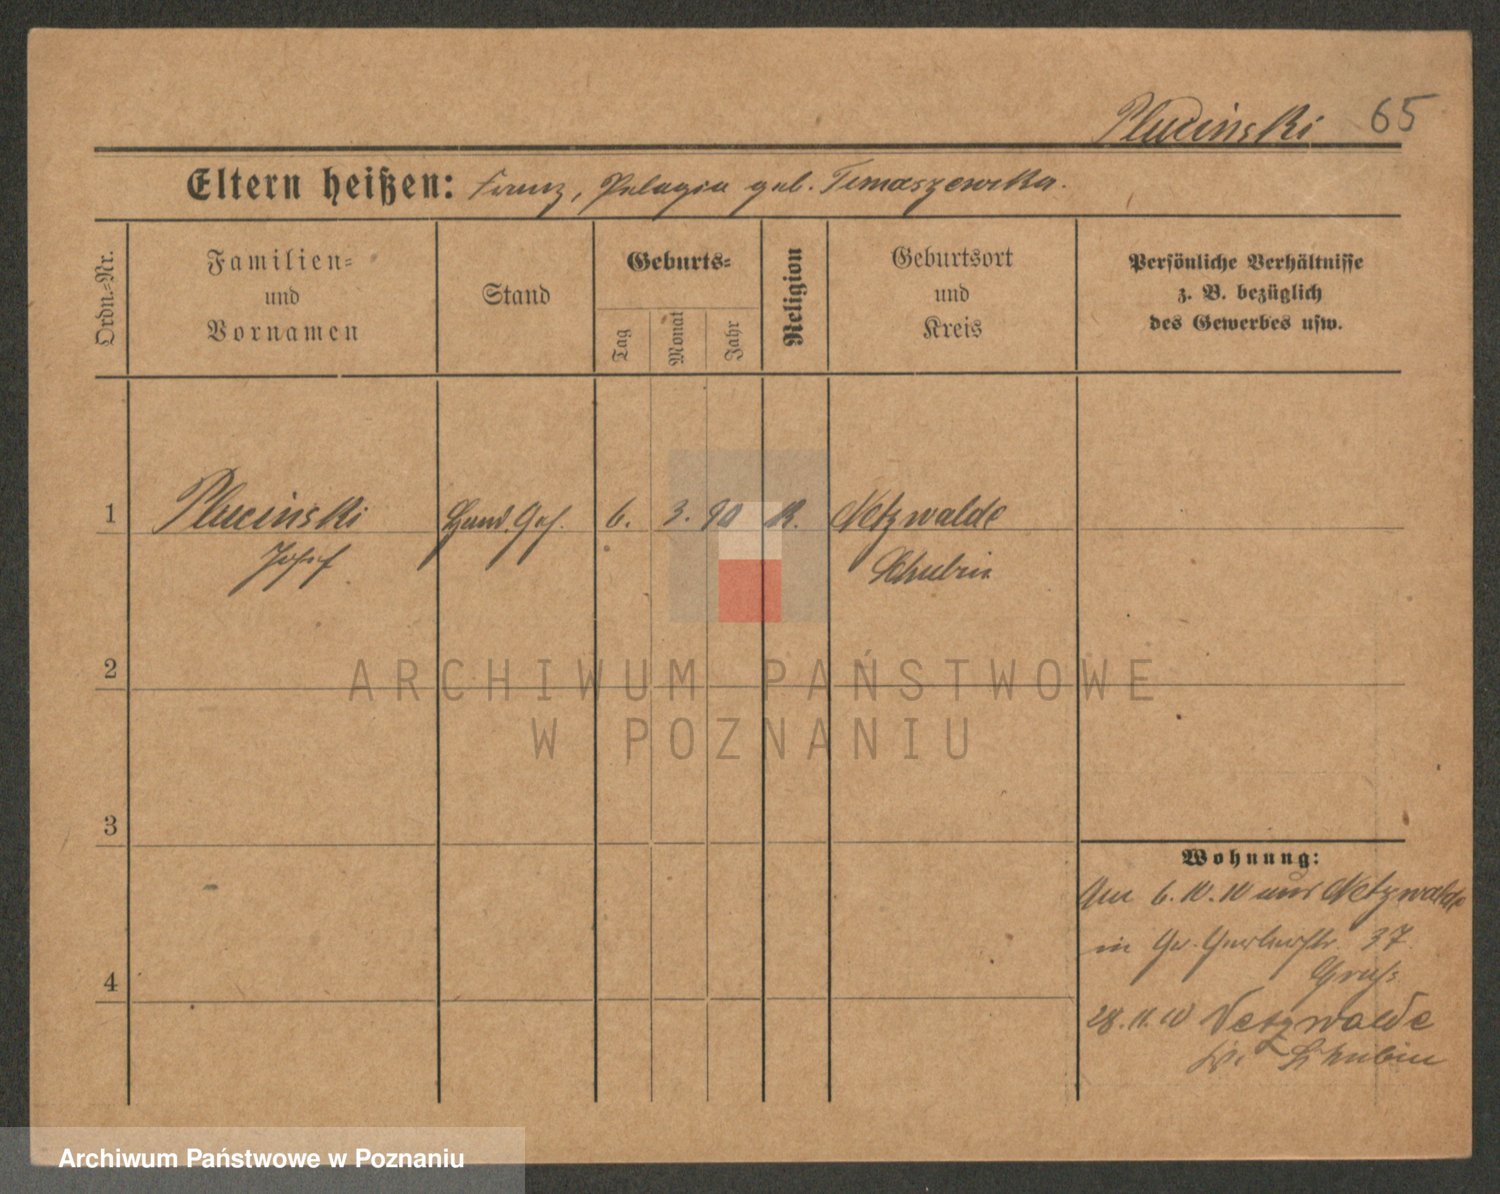 Plucinski 65
Eltern heißen: Franz, Pelagia geb. Tomaszewska.
Ordn.=Nr.
Familien=
und
Vornamen
Stand
Geburts=
Tag
Monat
Jahr
Religion
Geburtsort
und
Kreis
Persönliche Verhältnisse
z. B. bezüglich
des Gewerbes usw.
1 Plucinski Hand. Geh. 6. 3. 90 K. Netzwalde
Josef Schubin
2
ARCHIWUM PAŃSTWOWE
W POZNANIU
3
Wohnung:
6.10.10 aus Netzwalde
in Gr. Gerberstr. 37
4
28.11.10 Netzwalde
Kr. Schubin
Archiwum Państwowe w Poznaniu